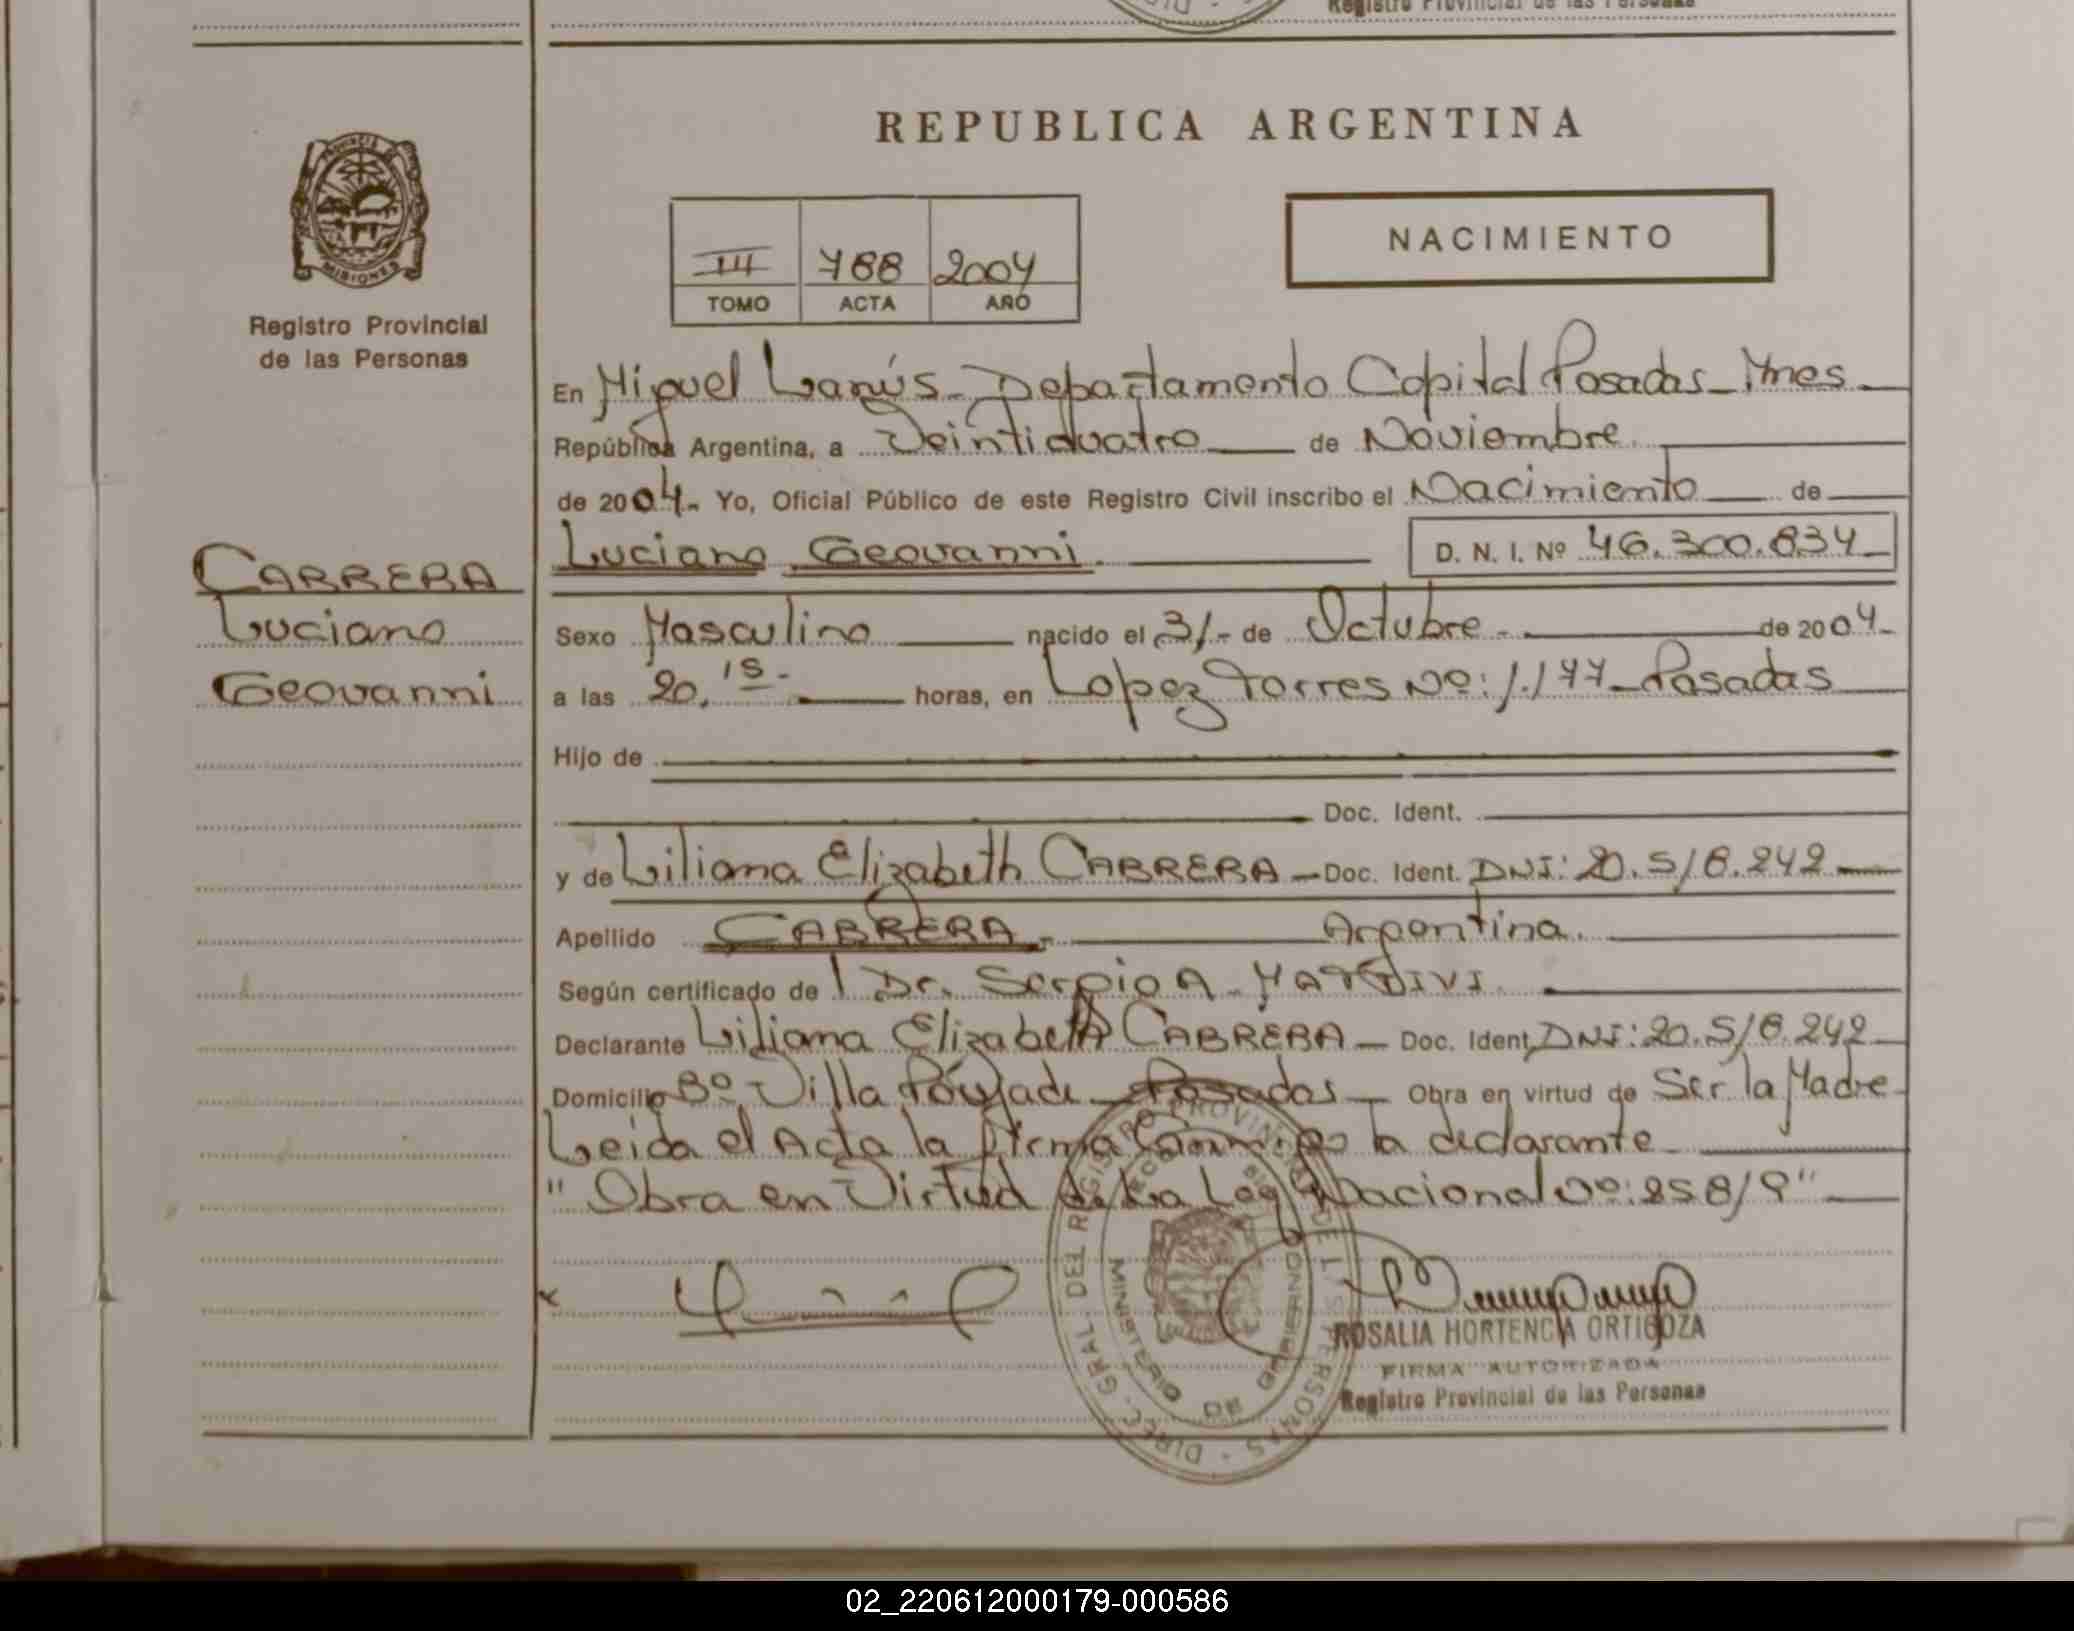 Registro Provincial de las Personas
REPUBLICA ARGENTINA
PROVINCIA DE
MISIONES
Registro Provincial
de las Personas
NACIMIENTO
III 788 2004
TOMO ACTA AÑO
En Miguel Lanús - Departamento Capital Posadas - Mnes
República Argentina, a Veinticuatro de Noviembre
de 2004.- Yo, Oficial Público de este Registro Civil inscribo el Nacimiento de
Luciano Geovanni. D. N. I. Nº 46.300.834
CABRERA
Luciano
Geovanni
Sexo Masculino nacido el 31.- de Octubre - de 2004-
a las 20,15.- horas, en Lopez Torres Nº: 1.177 - Posadas
Hijo de
Doc. Ident.
y de Liliana Elizabeth CABRERA - Doc. Ident. DNI: 20.518.242
Apellido CABRERA.- Argentina.
Según certificado de Dr. Sergio A.
Declarante Liliana Elizabeth CABRERA - Doc. Ident. DNI: 20.518.242
Domicilio Bº Villa Poujade - Posadas - Obra en virtud de Ser la Madre
Leida el Acta la firma Conmigo la declarante
"Obra en Virtud de La Ley Nacional Nº: 25819"
DIREC. GRAL. DEL REGISTRO PROVINCIAL DE LAS PERSONAS
MINISTERIO DE GOBIERNO
ROSALIA HORTENCIA ORTIGOZA
FIRMA AUTORIZADA
Registro Provincial de las Personas
02_220612000179-000586